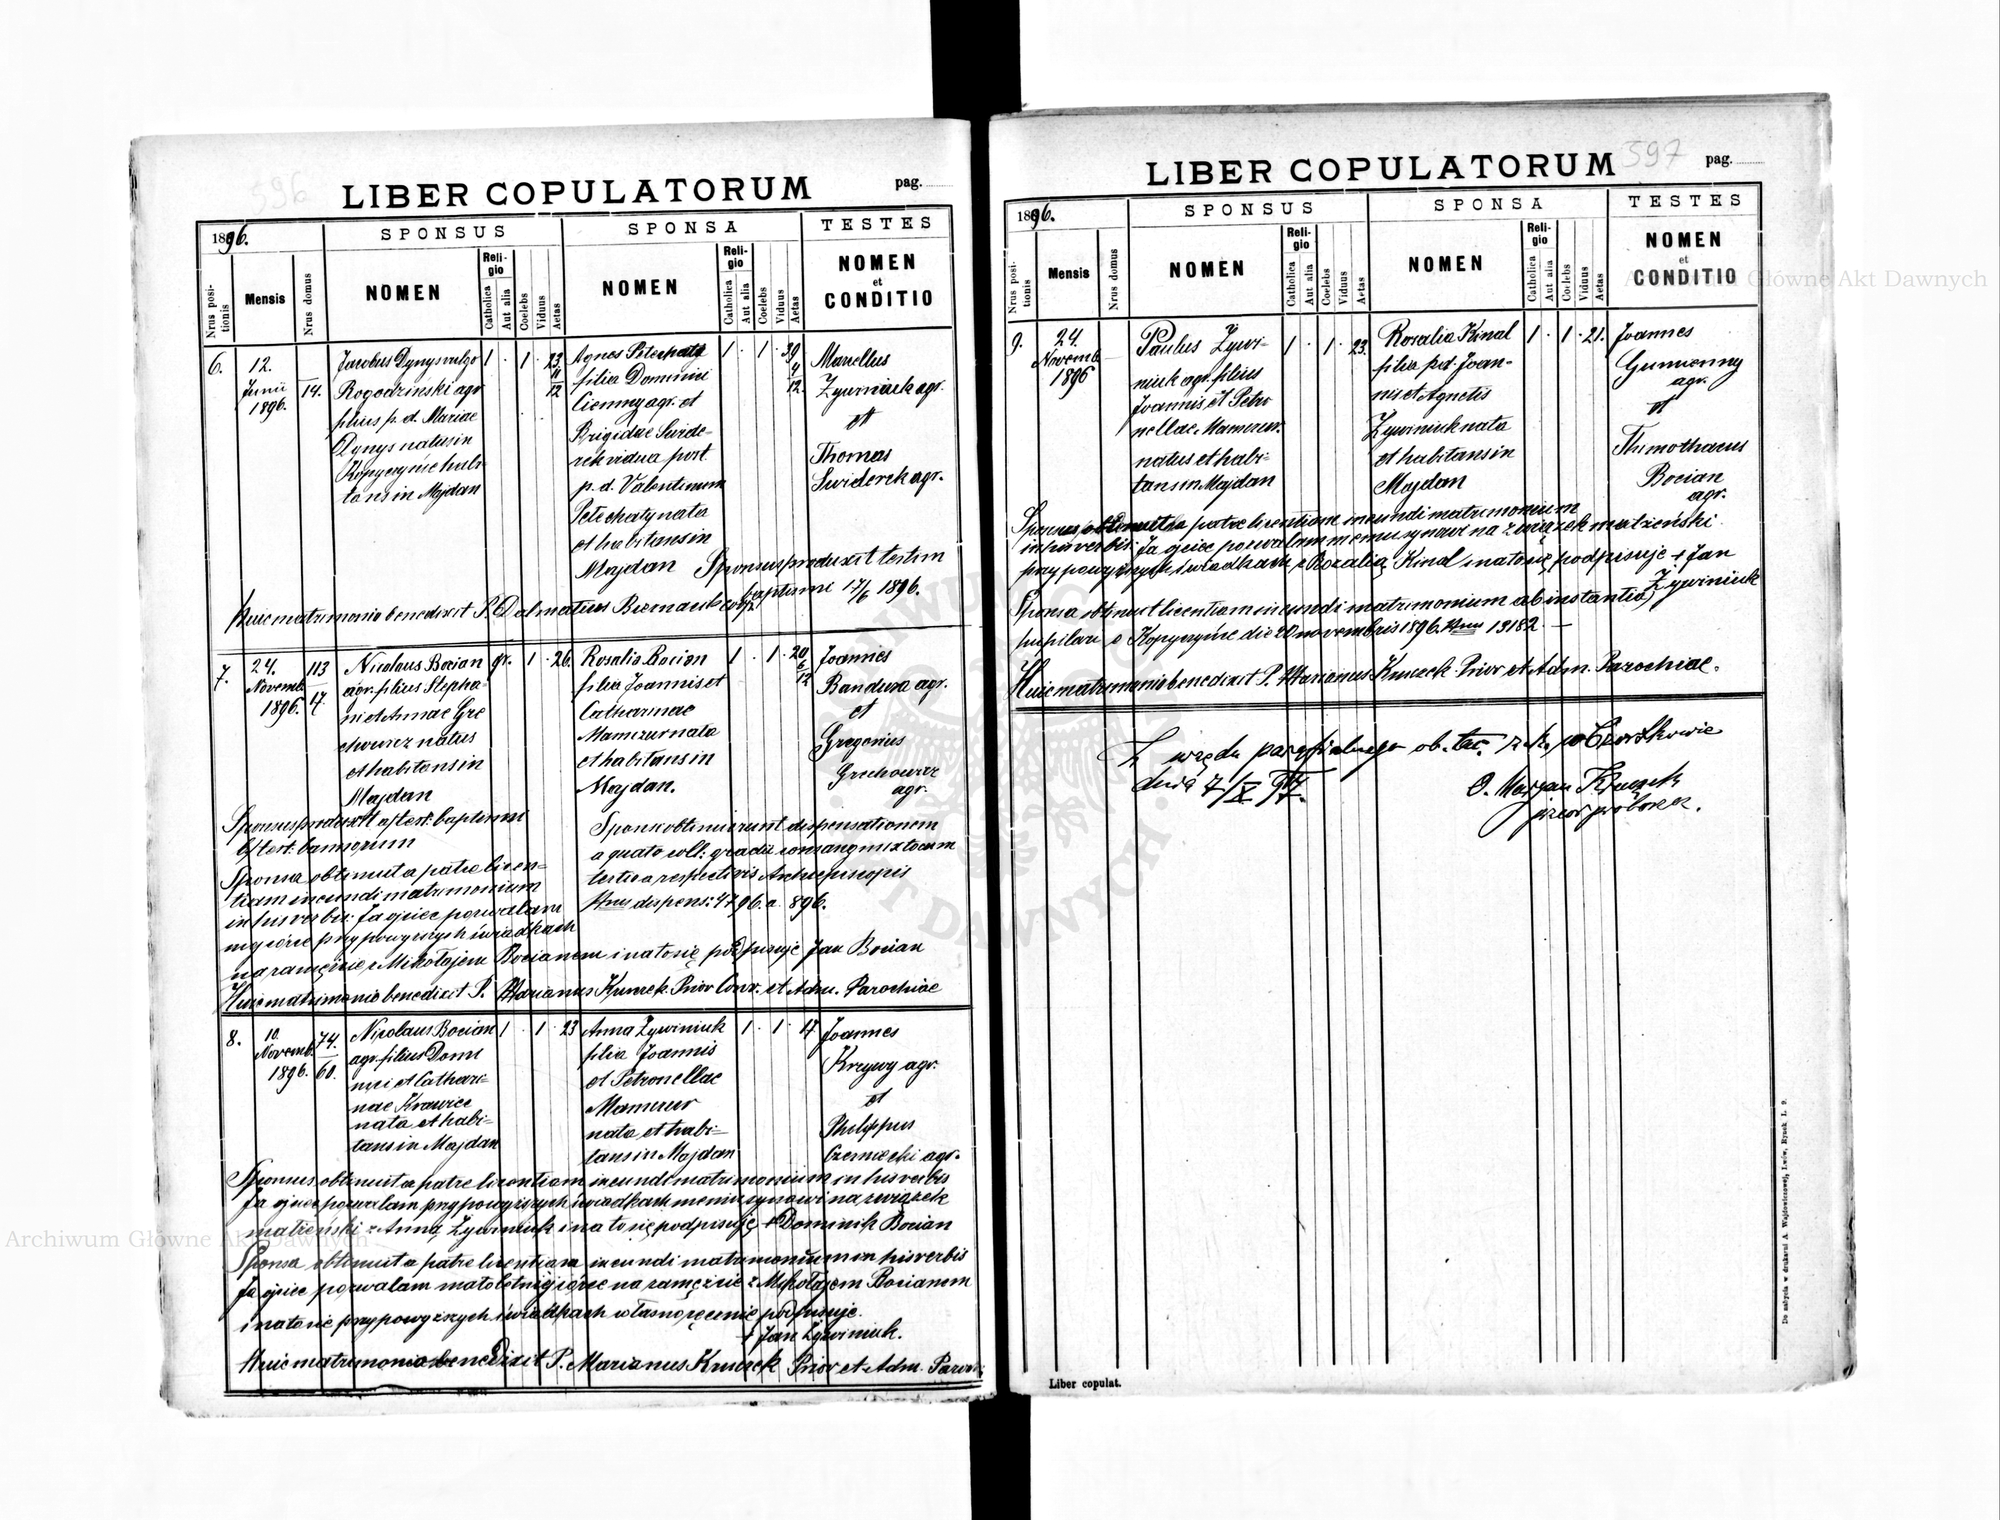 596
LIBER COPULATORUM
pag.
1896.
SPONSUS
SPONSA
TESTES
Nrus positionis
Mensis
Nrus domus
NOMEN
Religio
Catholica
Aut alia
Coelebs
Viduus
Aetas
NOMEN
Religio
Catholica
Aut alia
Coelebs
Viduus
Aetas
NOMEN
et
CONDITIO
6.
12.
Junii
1896.
14.
Jacobus Dynys vulgo
Rogodzinski agr
filius p. d. Mariae
Dynys natus in
Kopyczyńce habi-
tans in Majdan
1 . 1 . 23 11/12
Agnes Petechaty
filia Dominici
Ciemny agr. et
Brigidae Swide-
rek vidua post.
p. d. Valentinum
Petechaty nata
et habitans in
Majdan
1 . 1 . 39 4/12
Marcellus
Żywiniuk agr.
et
Thomas
Swiderek agr.
Sponsus produxit testim
baptismi 17/6 1896.
Huic matrimonio benedixit P. Dalmatius Biernacik coop.
7.
24.
Novemb.
1896.
113
17.
Nicolaus Bocian
agr. filius Stepha-
ni et Annae Gre
chowicz natus
et habitans in
Majdan
gr. 1 . 26.
Rosalia Bocian
filia Joannis et
Catharinae
Mamczur nata
et habitans in
Majdan.
1 . 1 . 20 6/12
Joannes
Bandura agr.
et
Gregorius
Grechowicz
agr.
Sponsus produxit a) test: baptismi
b) test. bannorum
Sponsa obtinuit a patre licen-
tiam incundi matrimonium
in his verbis: Ja ojciec pozwalam
mej córce przy powyższych świadkach
na zamęźcie z Mikołajem Bocianem i na to się podpisuję Jan Bocian
Sponsi obtinuerunt dispensationem
a quato coll: gradu consang mixtocum
tertio a respectivis Archiepiscopis
Nrus dispens: 4796. a. 896.
Huic matrimonio benedixit P. Marianus Kruczek Prior Conv. et Adm. Parochiae
8.
10.
Novemb.
1896.
74.
60.
Nicolaus Bocian
agr. filius Domi
nici et Cathari-
nae Krawiec
nata et habi-
tans in Majdan
1 . 1 . 23
Anna Żywiniuk
filia Joannis
et Petronellae
Mamczur
nata et habi-
tans in Majdan
1 . 1 . 17
Joannes
Krzywy agr.
et
Philippus
Czerniecki agr.
Sponsus obtinuit a patre licentiam incundi matrimonium in his verbis
Ja ojciec pozwalam przy powyższych świadkach memu synowi na związek
małżeński z Anną Żywiniuk i na to się podpisuję + Dominik Bocian
Sponsa obtinuit a patre licentiam incundi matrimonium in his verbis
Ja ojciec pozwalam małoletniej córce na zamęźcie z Mikołajem Bocianem
i na to się przy powyższych świadkach własnoręcznie podpisuję.
+ Jan Żywiniuk.
Huic matrimonio benedixit P. Marianus Kruczek Prior et Adm. Paroch:
597
LIBER COPULATORUM
pag.
1896.
SPONSUS
SPONSA
TESTES
Nrus positionis
Mensis
Nrus domus
NOMEN
Religio
Catholica
Aut alia
Coelebs
Viduus
Aetas
NOMEN
Religio
Catholica
Aut alia
Coelebs
Viduus
Aetas
NOMEN
et
CONDITIO
9.
24.
Novemb.
1896
Paulus Żywi-
niuk agr. filius
Joannis et Petro
nellae Mamczur.
natus et habi-
tans in Majdan
1 . 1 . 23.
Rosalia Kinal
filia p.d. Joan-
nis et Agnetis
Żywiniuk nata
et habitans in
Majdan
1 . 1 . 21.
Joannes
Gumienny
agr.
et
Thimothaeus
Bocian
agr.
Sponsus obtinuit a patre licentiam incundi matrimonium
in his verbis: Ja ojciec pozwalam memu synowi na związek małżeński
przy powyższych świadkach z Rozalią Kinal i na to się podpisuję + Jan
Żywiniuk
Sponsa obtinuit licentiam incundi matrimonium ab instantia
pupilari e Kopyczyńce die 20 novembris 1896. Nrus 13182. —
Huic matrimonio benedixit P. Marianus Kruczek Prior et Adm. Parochiae.
Z urzędu parafialnego ob. łac. r. k. w Czortkowie
dnia 7/X 97.
O. Maryan Kruczek
przeor proboszcz.
Liber copulat.
Do nabycia w drukarni A. Wajdowiczowej, Lwów, Rynek l. 9.
Archiwum Główne Akt Dawnych
Archiwum Główne Akt Dawnych